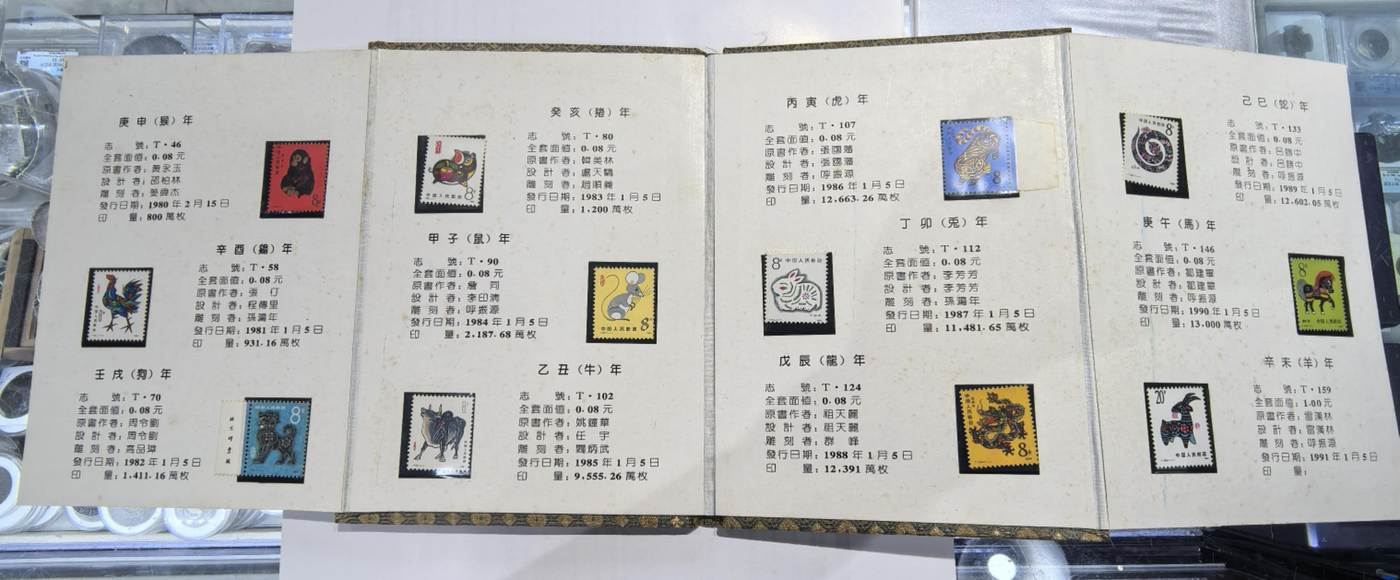 庚申（猴）年
志　號：T·46
全套面值：0.08元
原畫作者：黃永玉
設計者：邵柏林
雕刻者：姜偉杰
發行日期：1980年2月15日
印　量：800萬枚
辛酉（鷄）年
志　號：T·58
全套面值：0.08元
原畫作者：張仃
設計者：程傳理
雕刻者：孫鴻年
發行日期：1981年1月5日
印　量：931.16萬枚
壬戌（狗）年
志　號：T·70
全套面值：0.08元
原畫作者：周令釗
設計者：周令釗
雕刻者：高品璋
發行日期：1982年1月5日
印　量：1,411.16萬枚
癸亥（猪）年
志　號：T·80
全套面值：0.08元
原畫作者：韓美林
設計者：盧天驕
雕刻者：趙順義
發行日期：1983年1月5日
印　量：1,200萬枚
甲子（鼠）年
志　號：T·90
全套面值：0.08元
原畫作者：詹同
設計者：李印清
雕刻者：呼振源
發行日期：1984年1月5日
印　量：2,187.68萬枚
乙丑（牛）年
志　號：T·102
全套面值：0.08元
原畫作者：姚鍾華
設計者：任宇
雕刻者：閻炳武
發行日期：1985年1月5日
印　量：9,555.26萬枚
丙寅（虎）年
志　號：T·107
全套面值：0.08元
原畫作者：張國藩
設計者：張國藩
雕刻者：呼振源
發行日期：1986年1月5日
印　量：12,663.26萬枚
丁卯（兎）年
志　號：T·112
全套面值：0.08元
原畫作者：李芳芳
設計者：李芳芳
雕刻者：孫鴻年
發行日期：1987年1月5日
印　量：11,481.65萬枚
戊辰（龍）年
志　號：T·124
全套面值：0.08元
原畫作者：祖天麗
設計者：祖天麗
雕刻者：群峰
發行日期：1988年1月5日
印　量：12,391萬枚
己巳（蛇）年
志　號：T·133
全套面值：0.08元
原畫作者：呂勝中
設計者：呂勝中
雕刻者：呼振源
發行日期：1989年1月5日
印　量：12,602.05萬枚
庚午（馬）年
志　號：T·146
全套面值：0.08元
原畫作者：鄒建軍
設計者：鄒建軍
雕刻者：呼振源
發行日期：1990年1月5日
印　量：13,000萬枚
辛未（羊）年
志　號：T·159
全套面值：1.00元
原畫作者：雷漢林
設計者：雷漢林
雕刻者：呼振源
發行日期：1991年1月5日
印　量：
8分
8分
8
中国人民邮政
8分
中国人民邮政
8
中国人民邮政
8
8分 中国人民邮政
8分
中国人民邮政 8分
8分
20分
中国人民邮政